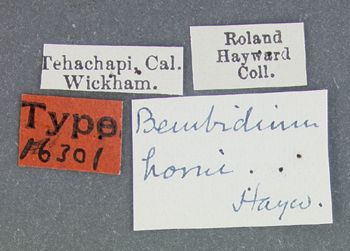 Tehachapi, Cal.
Wickham.
Roland
Hayward
Coll.
Type
16301
Bembidium
horni . . .
Hayw.